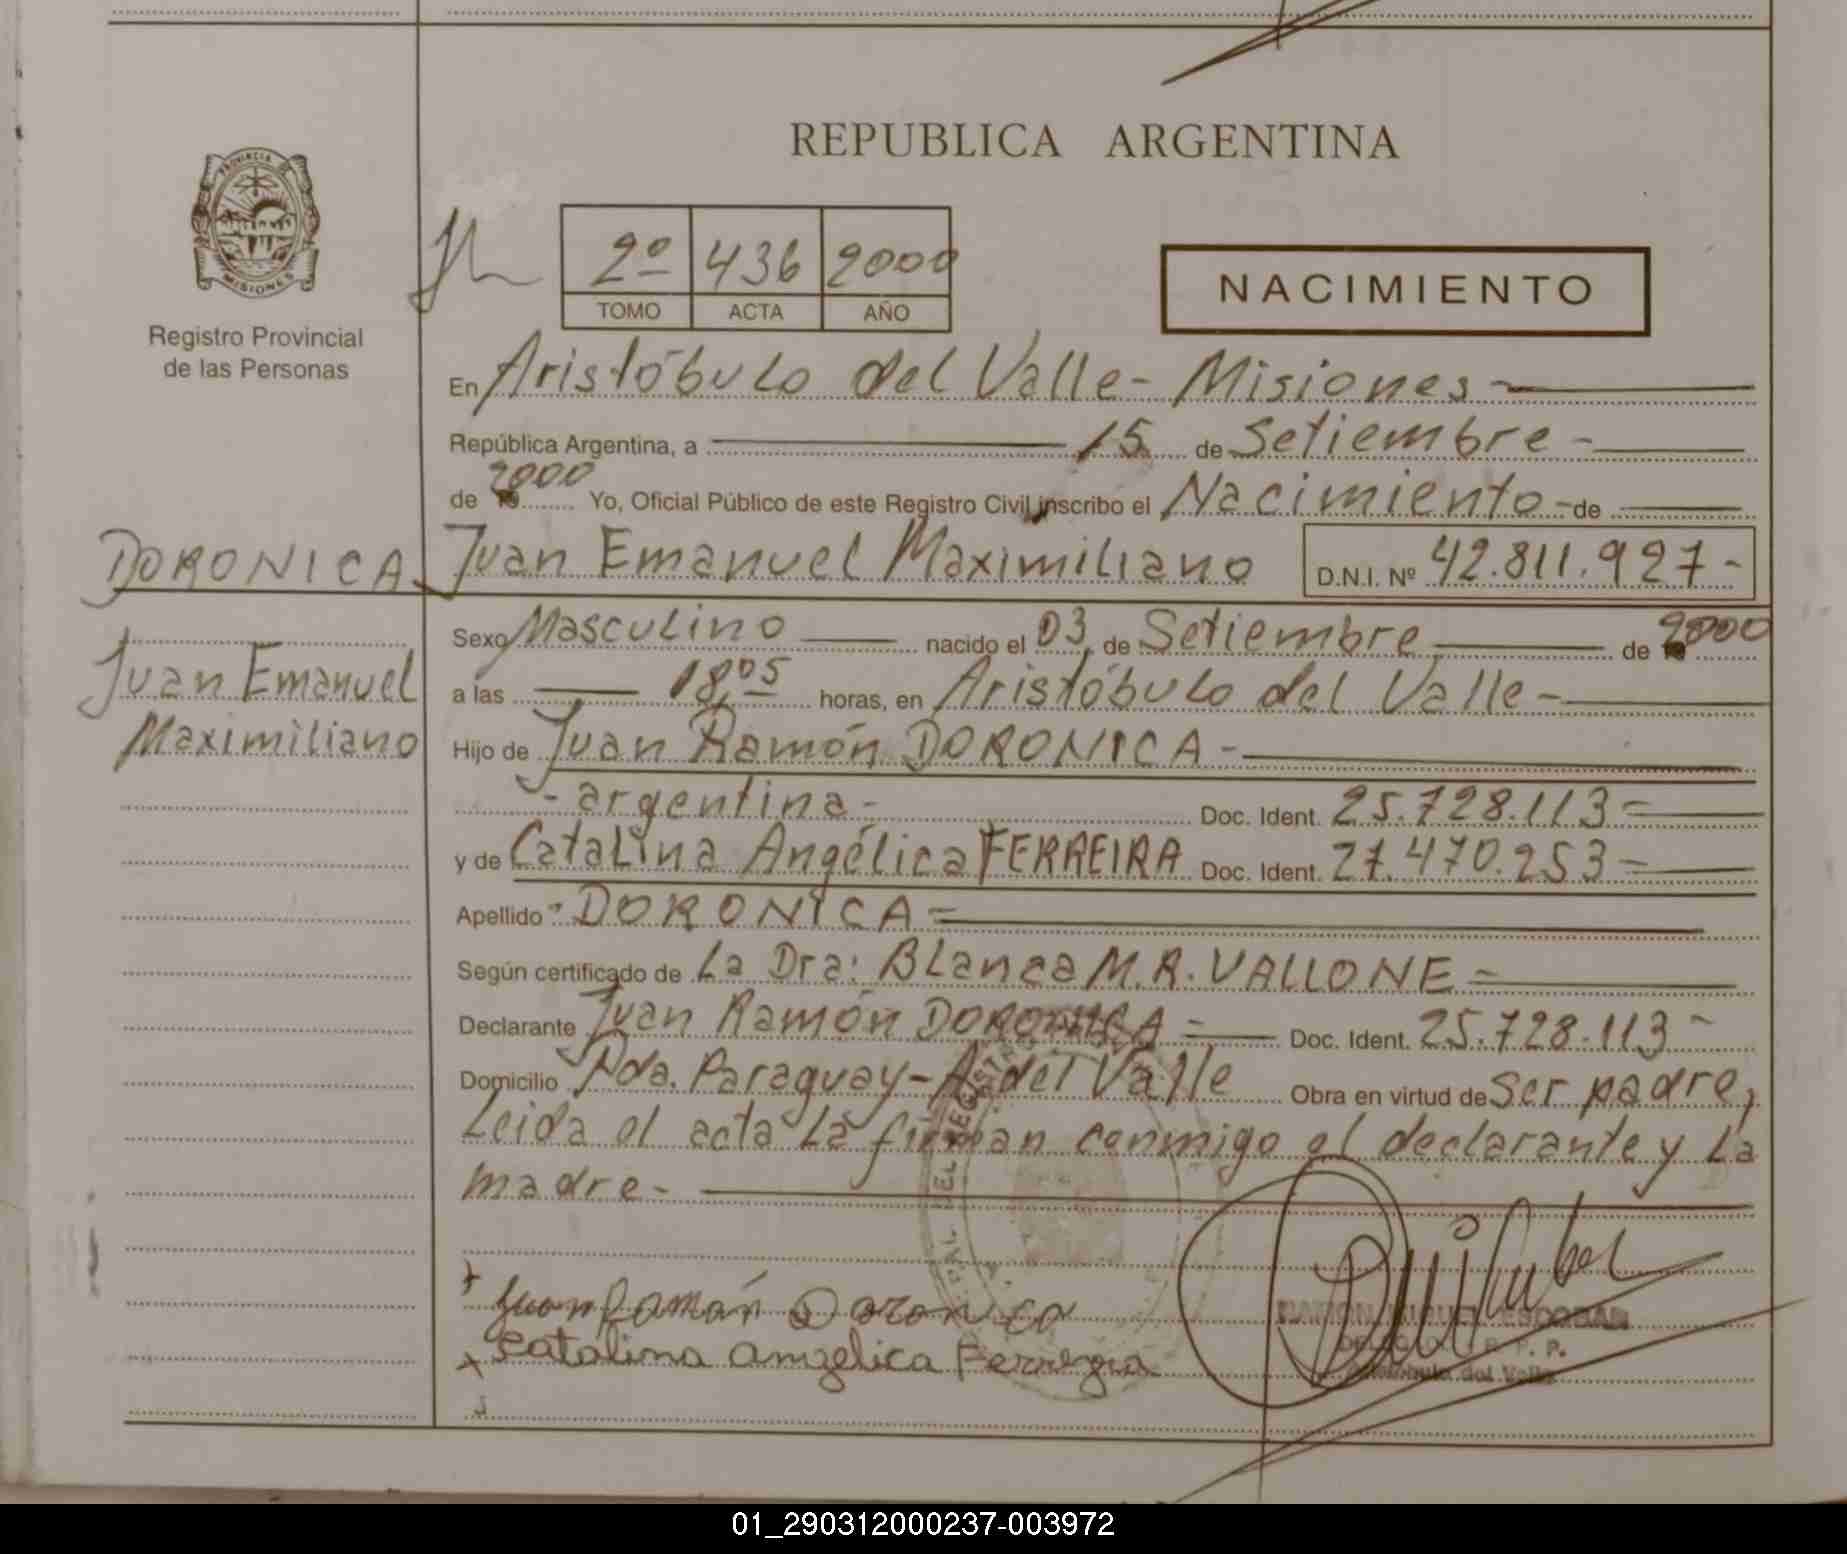 REPUBLICA ARGENTINA
PROVINCIA DE
MISIONES
Registro Provincial
de las Personas
2º 436 2000
TOMO ACTA AÑO
NACIMIENTO
En Aristóbulo del Valle - Misiones -
República Argentina, a 15 de Setiembre -
de 2000 Yo, Oficial Público de este Registro Civil inscribo el Nacimiento - de
DORONICA Juan Emanuel Maximiliano D.N.I. Nº 42.811.927 -
Sexo Masculino nacido el 03 de Setiembre de 2000
Juan Emanuel
Maximiliano
a las 18,05 horas, en Aristóbulo del Valle -
Hijo de Juan Ramón DORONICA -
- argentina - Doc. Ident. 25.728.113 =
y de Catalina Angélica FERREIRA Doc. Ident. 27.470.253 =
Apellido - DORONICA =
Según certificado de La Dra: Blanca M. R. VALLONE =
Declarante Juan Ramón DORONICA = Doc. Ident. 25.728.113 -
Domicilio Pda. Paraguay - A. del Valle Obra en virtud de Ser padre,
Leida el acta La firman conmigo el declarante y La
madre -
Juan Ramón Doronica
RAMON MIGUEL ESCOBAR
Catalina Amgelica Ferreyra
Aristóbulo del Valle
01_290312000237-003972